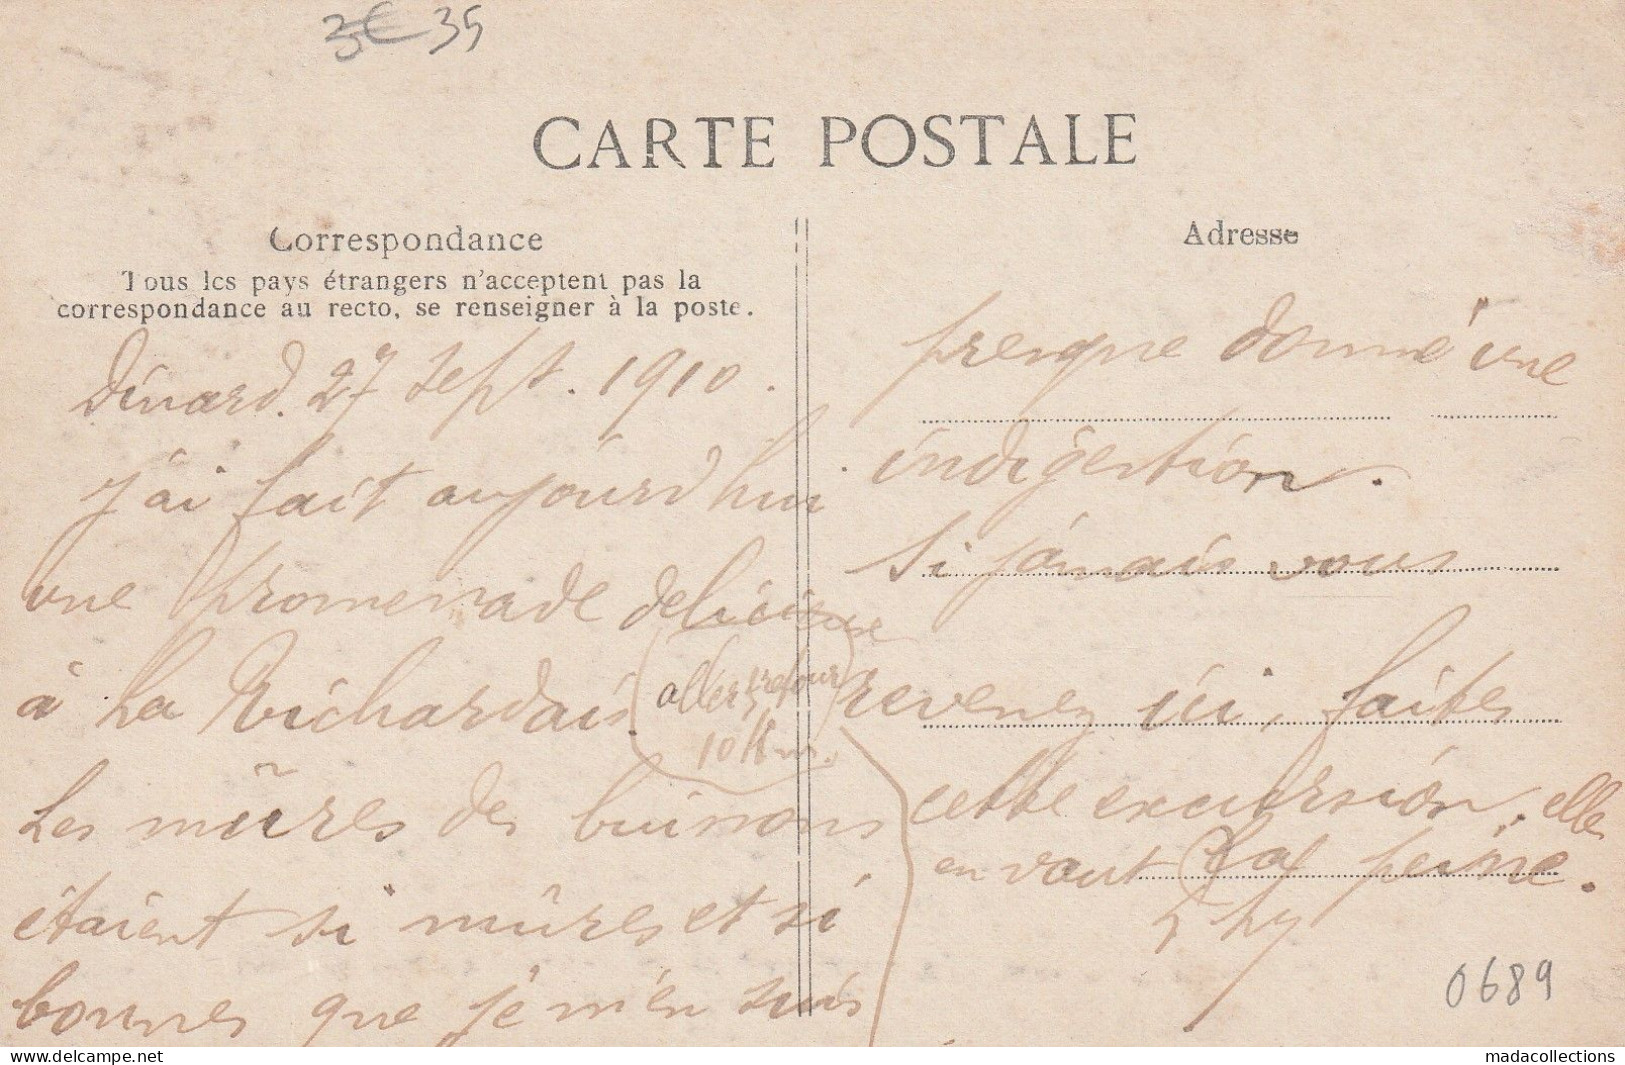 3€ 35
CARTE POSTALE
Correspondance
Tous les pays étrangers n'acceptent pas la
correspondance au recto, se renseigner à la poste.
Dinard. 27 sept. 1910.
J'ai fait aujourd'hui
une promenade delicieuse
à La Richardais.
(aller & retour
10 Km.)
Les mûres des buissons
étaient si mûres et si
bonnes que je m'en suis
Adresse
presque donné une
indigestion.
Si jamais vous
revenez ici, faites
cette excursion, elle
en vaut la peine.
0689
www.delcampe.net
madacollections